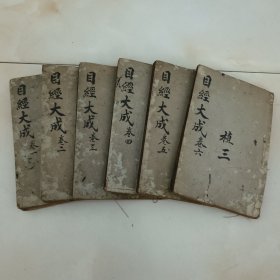 目經大成 卷一
目經大成 卷二
目經大成 卷三
目經大成 卷四
目經大成 卷五
目經大成 卷六
三